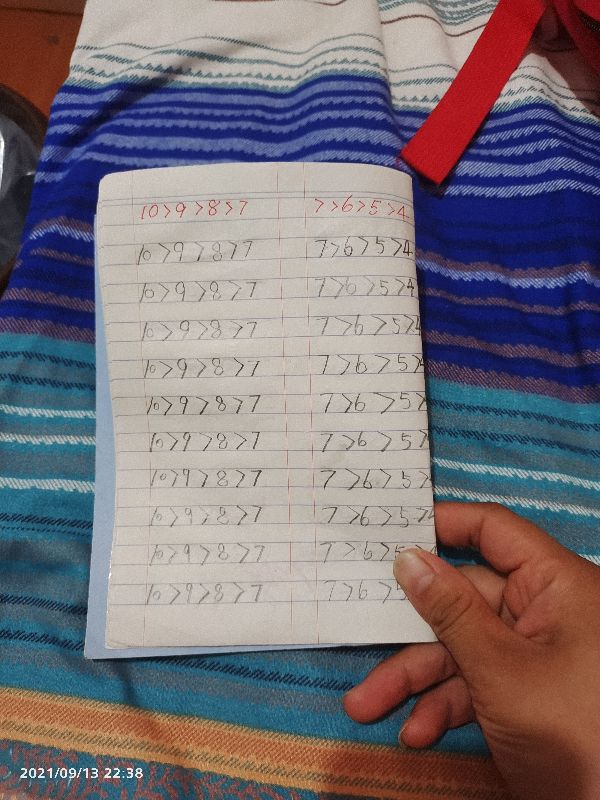 10>9>8>7 7>6>5>4
10>9>8>7 7>6>5>4
10>9>8>7 7>6>5>4
10>9>8>7 7>6>5>4
10>9>8>7 7>6>5>4
10>9>8>7 7>6>5>
10>9>8>7 7>6>5>
10>9>8>7 7>6>5>
10>9>8>7 7>6>5>4
10>9>8>7 7>6>5>4
10>9>8>7 7>6>5
2021/09/13 22:38